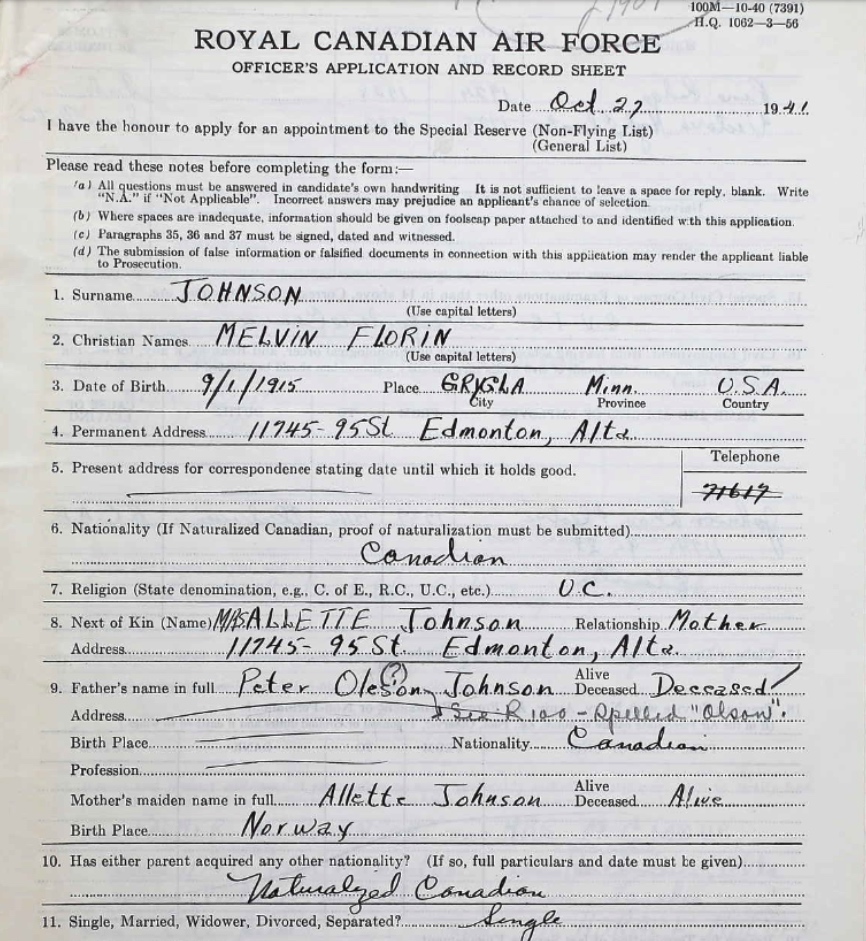 100M—10-40 (7391)
H.Q. 1062—3—56
ROYAL CANADIAN AIR FORCE
OFFICER'S APPLICATION AND RECORD SHEET
Date Oct 27 1941
I have the honour to apply for an appointment to the Special Reserve (Non-Flying List)
(General List)
Please read these notes before completing the form:—
(a) All questions must be answered in candidate's own handwriting It is not sufficient to leave a space for reply, blank. Write
"N.A." if "Not Applicable". Incorrect answers may prejudice an applicant's chance of selection.
(b) Where spaces are inadequate, information should be given on foolscap paper attached to and identified with this application.
(c) Paragraphs 35, 36 and 37 must be signed, dated and witnessed.
(d) The submission of false information or falsified documents in connection with this application may render the applicant liable
to Prosecution.
1. Surname JOHNSON
(Use capital letters)
2. Christian Names MELVIN FLORIN
(Use capital letters)
3. Date of Birth 9/1/1915 Place GRYGLA Minn. U.S.A.
City Province Country
4. Permanent Address 11745-95 St Edmonton, Alta.
Telephone
5. Present address for correspondence stating date until which it holds good.
71617
6. Nationality (If Naturalized Canadian, proof of naturalization must be submitted)
Canadian
7. Religion (State denomination, e.g., C. of E., R.C., U.C., etc.) U.C.
8. Next of Kin (Name) MRS ALLETTE Johnson Relationship Mother
Address 11745-95 St. Edmonton, Alta.
9. Father's name in full Peter Oleson Johnson Alive Deceased Deceased
(?)
Address See R100 - Spelled "Olson".
Birth Place Nationality Canadian
Profession
Mother's maiden name in full Allette Johnson Alive Deceased Alive
Birth Place Norway
10. Has either parent acquired any other nationality? (If so, full particulars and date must be given)
Naturalized Canadian
11. Single, Married, Widower, Divorced, Separated? Single